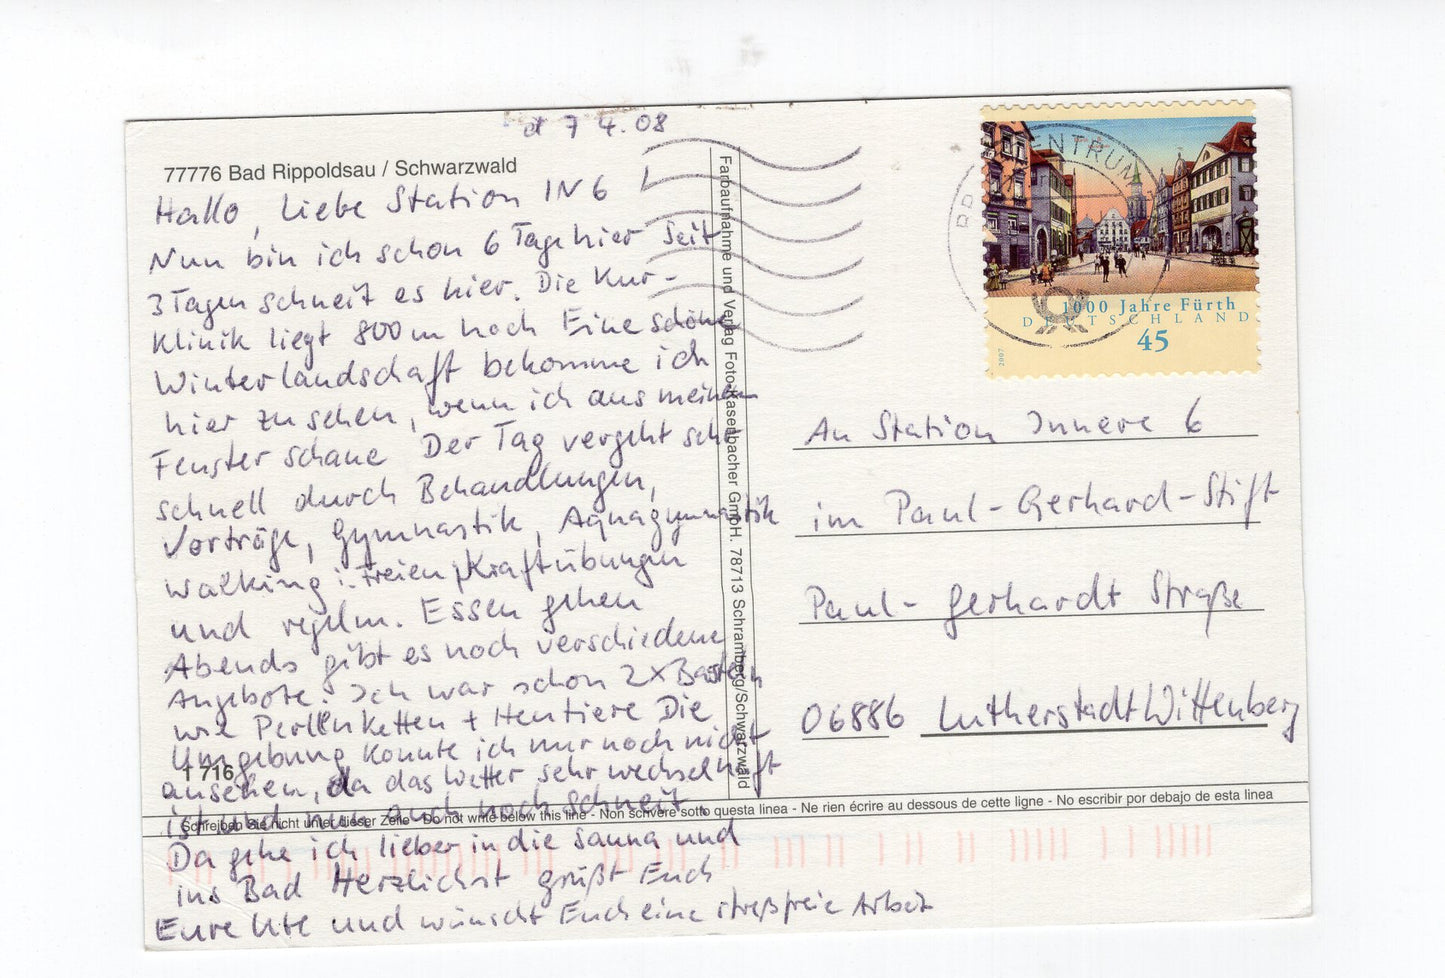 d 7 4.08
77776 Bad Rippoldsau / Schwarzwald
Hallo, liebe Station IN 6 !
Nun bin ich schon 6 Tage hier Seit
3 Tagen schneit es hier. Die Kur-
Klinik liegt 800 m hoch Eine schöne
Winterlandschaft bekomme ich
hier zu sehen, wenn ich aus meinem
Fenster schaue Der Tag vergeht sehr
schnell durch Behandlungen,
Vorträge, Gymnastik, Aquagymnastik
Walking i. Freien, Kraftübungen
und regelm. Essen gehen
Abends gibt es noch verschiedene
Angebote. Ich war schon 2x Basteln
wie Perlenketten +
Die
Umgebung konnte ich nur noch nicht
ansehen, da das Wetter sehr wechselhaft
ist und nun auch noch schneit
Da gehe ich lieber in die Sauna und
ins Bad Herzlichst grüßt Euch
Eure Ute und wünscht Euch eine streßfreie Arbeit
1 716
Schreiben Sie nicht unter dieser Zeile - Do not write below this line - Non scrivere sotto questa linea - Ne rien écrire au dessous de cette ligne - No escribir por debajo de esta linea
Farbaufnahme und Verlag Foto-Kasenbacher GmbH. 78713 Schramberg/Schwarzwald
ENTRUM
1000 Jahre Fürth
DEUTSCHLAND
45
2007
An Station Innere 6
im Paul-Gerhard-Stift
Paul-Gerhardt Straße
06886 Lutherstadt Wittenberg